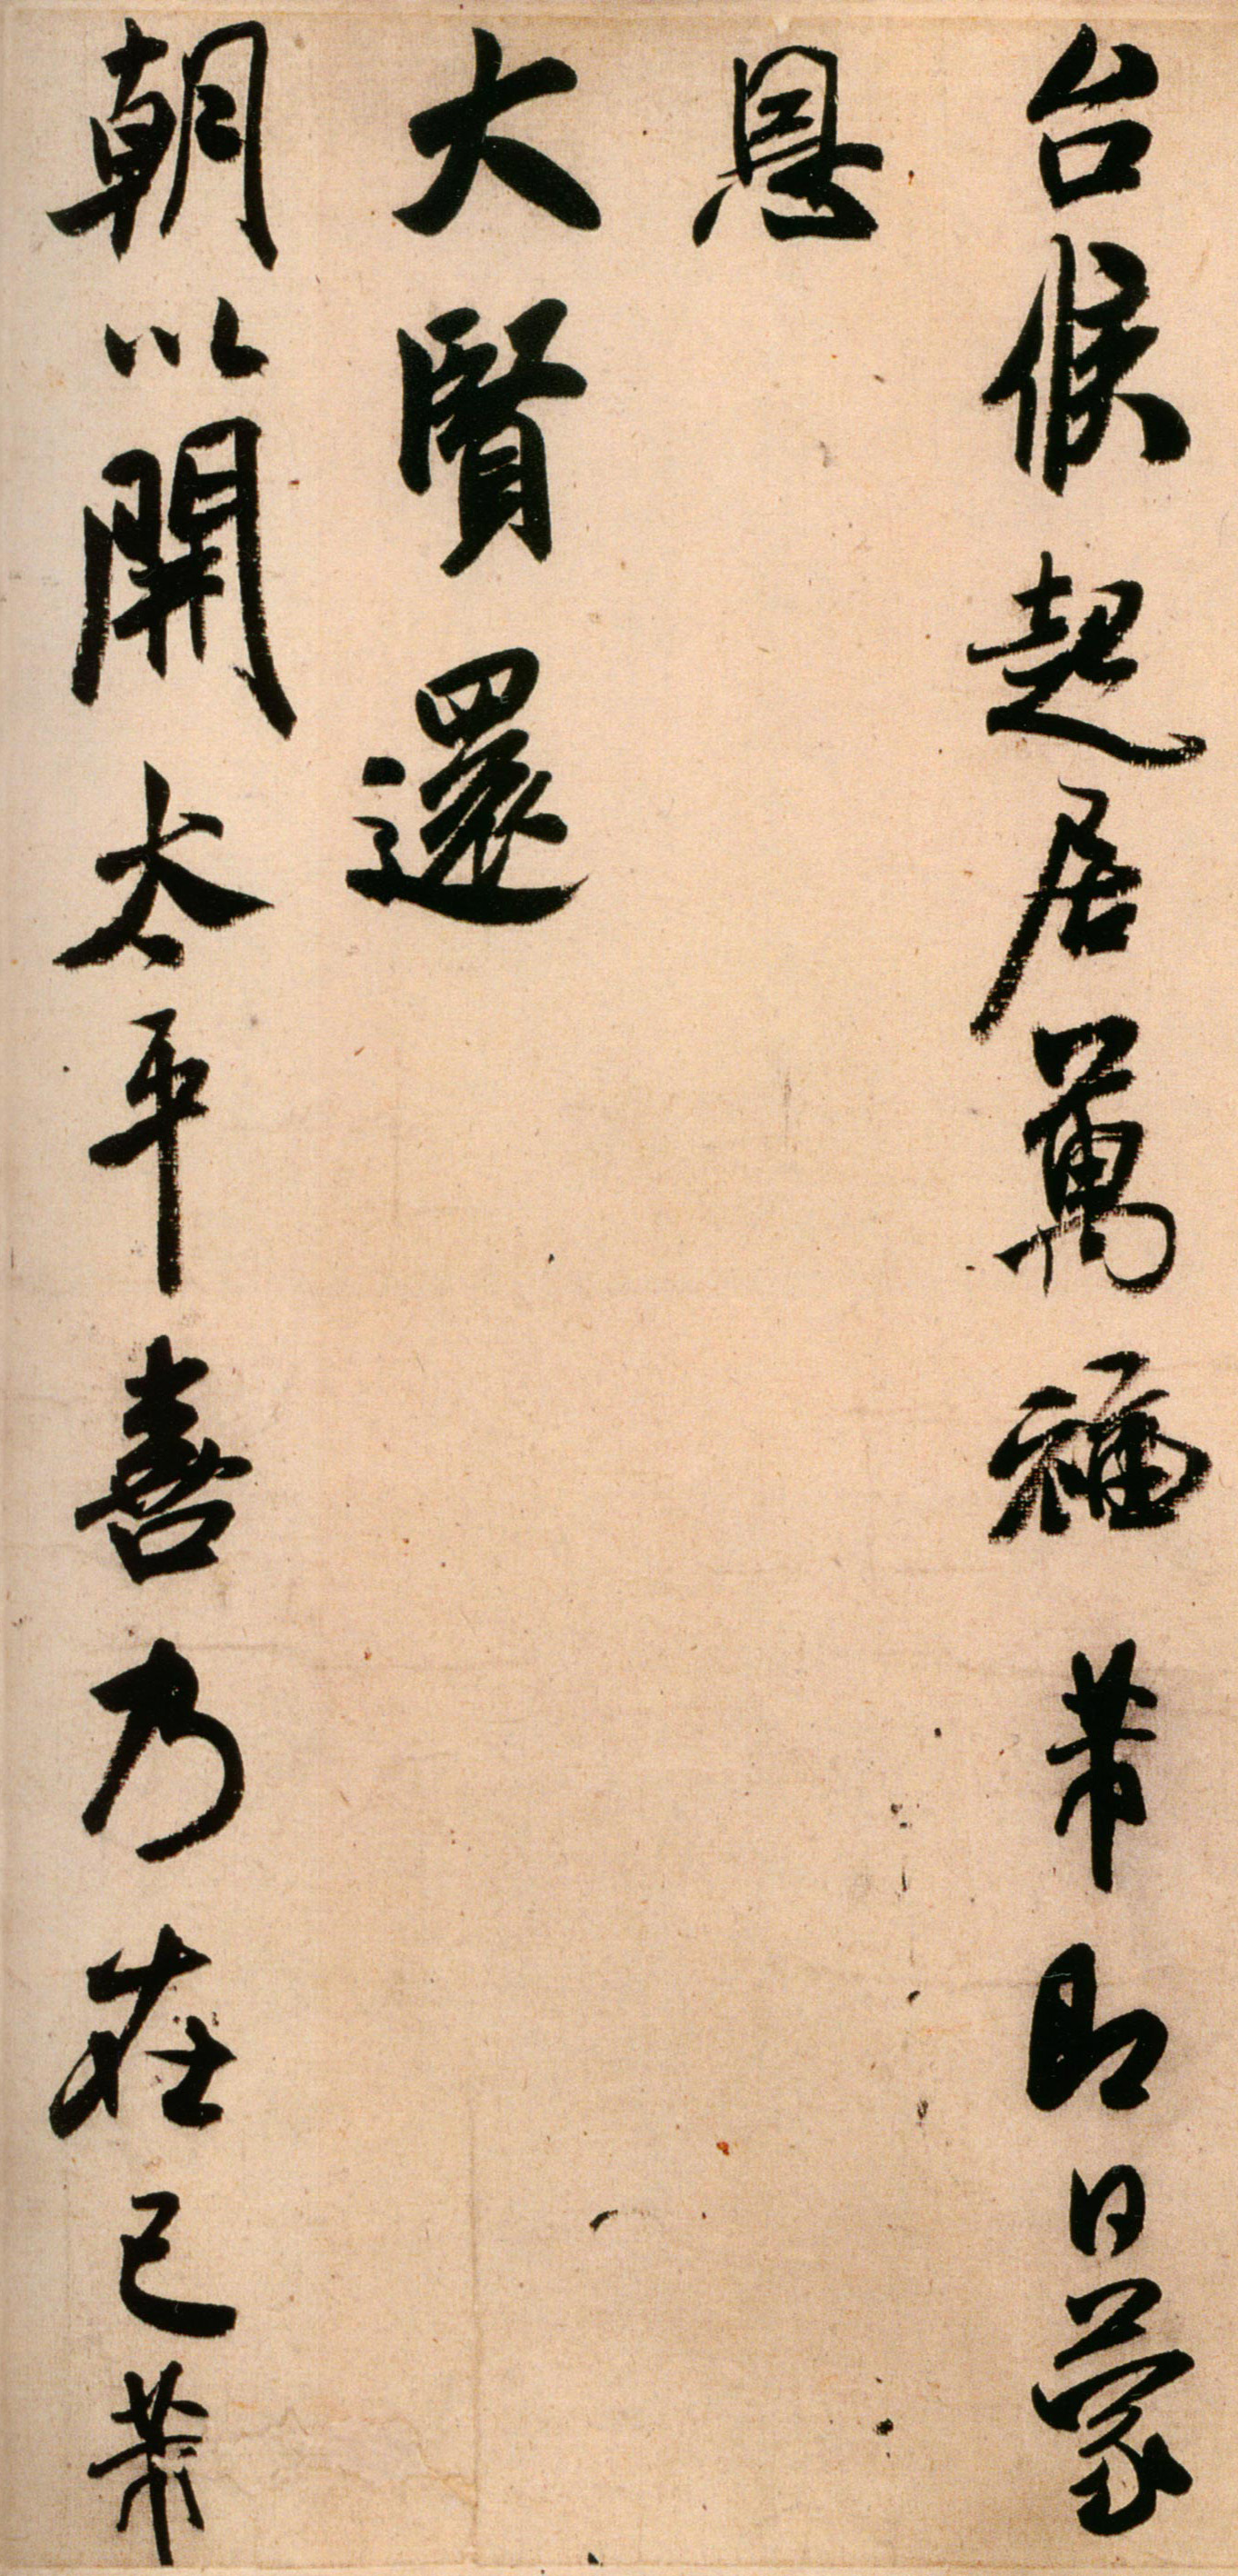 台候起居萬福芾即日蒙
恩
大賢還
朝以開太平喜乃在己芾